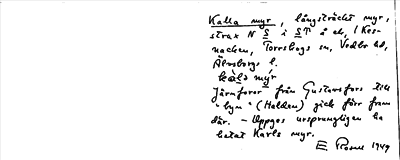 Kalla myr, långsträckt myr,
strax N S i ST å ek, (Kes-
nacken, Torrskogs sn, Vedbo hd,
Älvsborgs l.
kàlà mýr
Järnforor från Gustavsfors till
"byn" (Halden) gick förr fram
där. – Uppges ursprungligen ha
hetat Karls myr.
E Rosell 1949